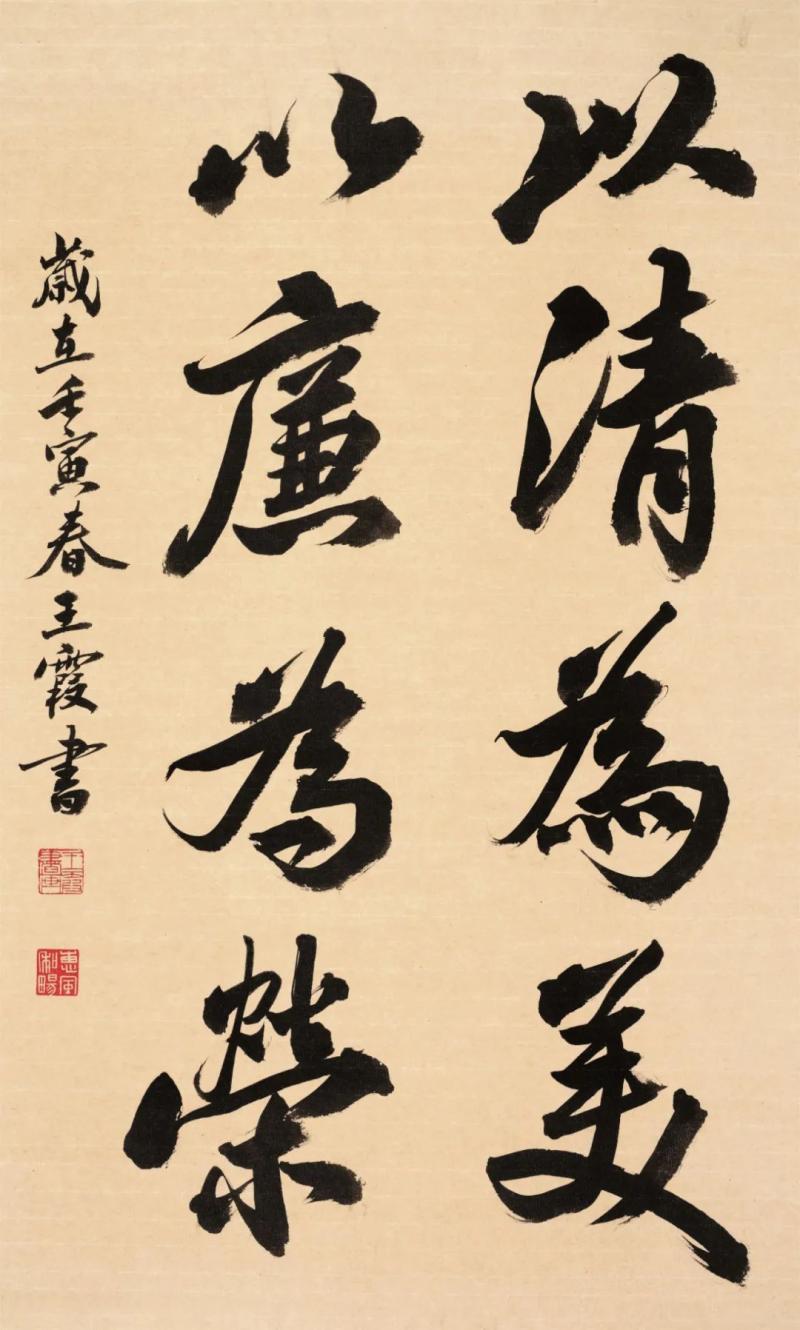 以清為美
以廉為榮
歲在壬寅春王霞書
王霞書画
惠風和暢